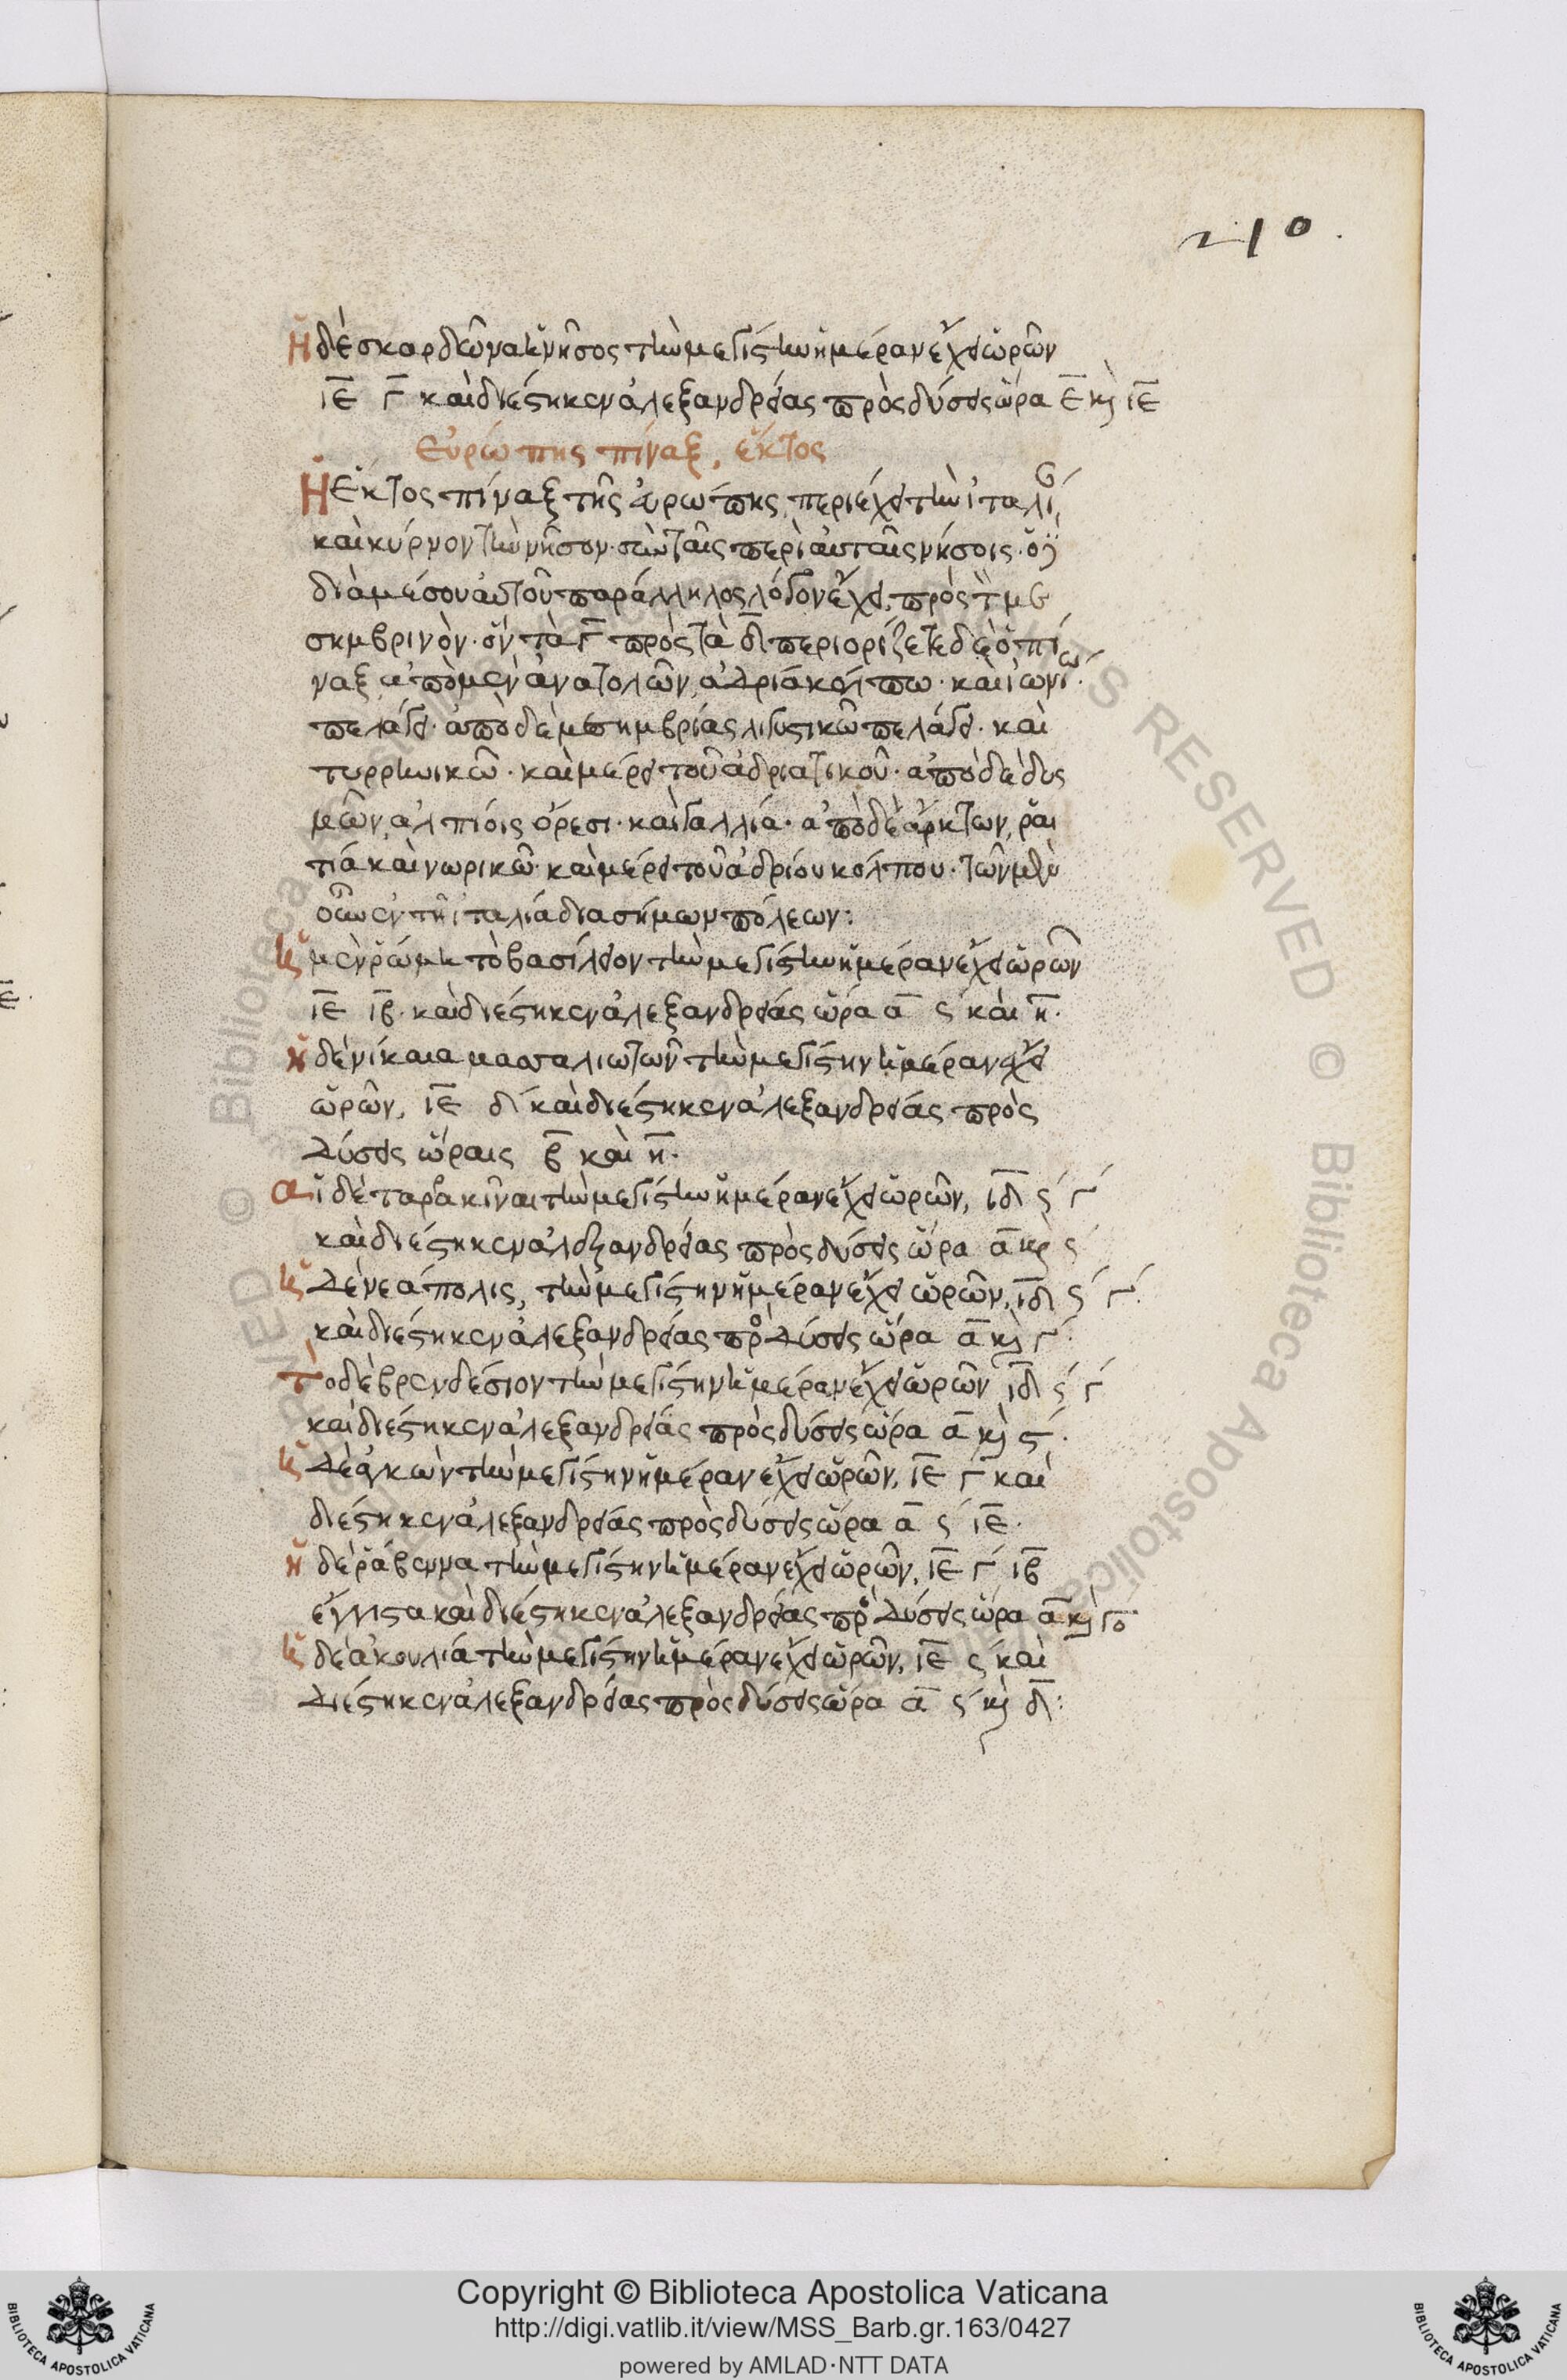 210.
Ἡ δὲ σκαρδῶνα ἡ νῆσος τὴν μεγίστην ἡμέραν ἔχει ὡρῶν
ιε γ καὶ διέστηκεν ἀλεξανδρείας πρὸς δύσεις ὥρα ε κ(αὶ) ιε
Εὐρώπης πίναξ, ἕκτος
Ἡ Εκτος πίναξ τῆς εὐρώπης περιέχει τὴν ἰταλί
καὶ κύρνον τὴν νῆσον· σὺν ταῖς περὶ αὐταῖς νήσοις· ὁ
διὰ μέσου αὐτοῦ παράλληλος λόγον ἔχει, πρὸς τ με
σημβρινὸν· ὃν τὰ γ πρὸς τὰ δ περιορίζεται δὲ ὁ πί
ναξ ἀπὸ μὲν ἀνατολῶν, ἀδρία κόλπω· καὶ ἰωνί
πελάγει· ἀπὸ δὲ μεσημβρίας λιγυστικῶ πελάγει· καὶ
τυρρηνικῶ· καὶ μέρει τοῦ ἀδριατικοῦ· ἀπὸ δὲ δυς
μῶν, ἀλπίοις όρεσι· καὶ γαλλία· ἀπὸ δὲ ἄρκτων, ῥαι
τία καὶ νωρικῶ· καὶ μέρει τοῦ ἀδρίου κόλπου· τῶν μὲν
οὖν ἐν τῆ ἰταλία διασήμων πόλεων:
ἡ μὲν ῥώμη τὸ βασίλειον τὴν μεγίστην ἡμέραν ἔχει ὡρῶν
ιε ιβ· καὶ διέστηκεν ἀλεξανδρείας ὥρα α ς καὶ η·
ἡ δὲ νίκαια μασσαλιωτῶν τὴν μεγίστην ἡμέραν ἔχει
ὡρῶν, ιε δ καὶ διέστηκεν ἀλεξανδρείας πρὸς
δύσεις ὥραις β καὶ η·
αἱ δὲ ταρακῖναι τὴν μεγίστην ἡμέραν ἔχει ὡρῶν, ιδ ς γ
καὶ διέστηκεν ἀλεξανδρείας πρὸς δύσεις ὥρα α κ(αὶ) ς
ἡ δὲ νεάπολις, τὴν μεγίστην ἡμέραν ἔχει ὡρῶν, ιδ ς γ·
καὶ διέστηκεν ἀλεξανδρείας πρὸς δύσεις ὥρα α κ(αὶ) γ·
τὸ δὲ βρενδέσιον τὴν μεγίστην ἡμέραν ἔχει ὡρῶν ιδ ς γ
καὶ διέστηκεν ἀλεξανδρείας πρὸς δύσεις ὥρα α κ(αὶ) ς·
ἡ δὲ ἀγκὼν τὴν μεγίστην ἡμέραν ἔχει ὡρῶν, ιε γ καὶ
διέστηκεν ἀλεξανδρείας πρὸς δύσεις ὥρα α ς ιε·
ἡ δὲ ῥάβεννα τὴν μεγίστην ἡμέραν ἔχει ὡρῶν, ιε γ ιβ
ἔγγιστα καὶ διέστηκεν ἀλεξανδρείας πρὸς δύσεις ὥρα α κ(αὶ) γο
ἡ δὲ ἀκουλία τὴν μεγίστην ἡμέραν ἔχει ὡρῶν, ιε ς καὶ
διέστηκεν ἀλεξανδρείας πρὸς δύσεις ὥρα α ς κ(αὶ) δ:
Copyright © Biblioteca Apostolica Vaticana
http://digi.vatlib.it/view/MSS_Barb.gr.163/0427
powered by AMLAD·NTT DATA
BIBLIOTECA APOSTOLICA VATICANA
BIBLIOTECA APOSTOLICA VATICANA